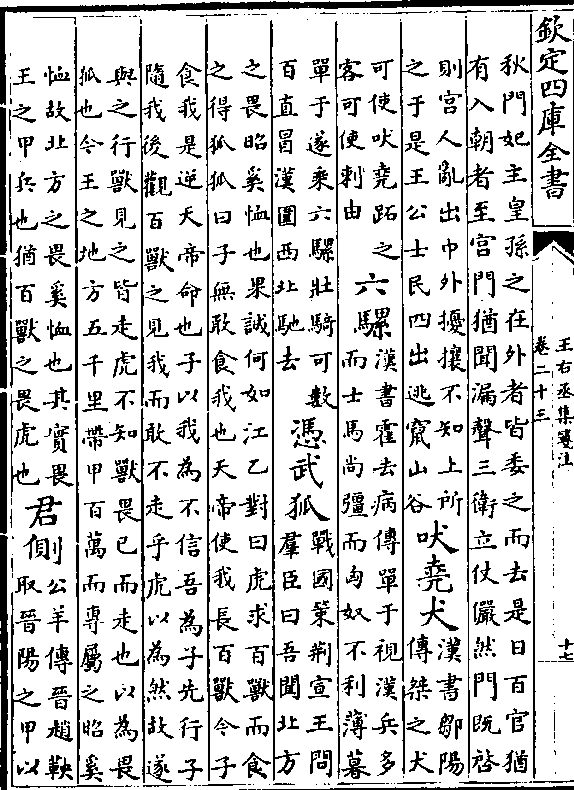 欽定四庫全書
王右丞集箋注
卷二十三
十七
秋門妃主皇孫之在外者皆委之而去是日百官猶
有入朝者至宮門猶聞漏聲三衛立仗儼然門既啓
則宮人亂出中外擾攘不知上所
之于是王公士民四出逃竄山谷
吠堯犬
漢書鄒陽
傳桀之犬
可使吠堯跖之
客可使刺由
六騾
漢書霍去病傳單于視漢兵多
而士馬尚彊而匈奴不利薄暮
單于遂乘六騾壯騎可數
百直冒漢圍西北馳去
憑武狐
戰國策荆宣王問
羣臣曰吾聞北方
之畏昭奚恤也果誠何如江乙對曰虎求百獸而食
之得狐狐曰子無敢食我也天帝使我長百獸令子
食我是逆天帝命也子以我為不信吾為子先行子
隨我後觀百獸之見我而敢不走乎虎以為然故遂
與之行獸見之皆走虎不知獸畏己而走也以為畏
狐也今王之地方五千里帶甲百萬而專屬之昭奚
恤故北方之畏奚恤也其實畏
王之甲兵也猶百獸之畏虎也
君側
公羊傳晉趙鞅
取晉陽之甲以